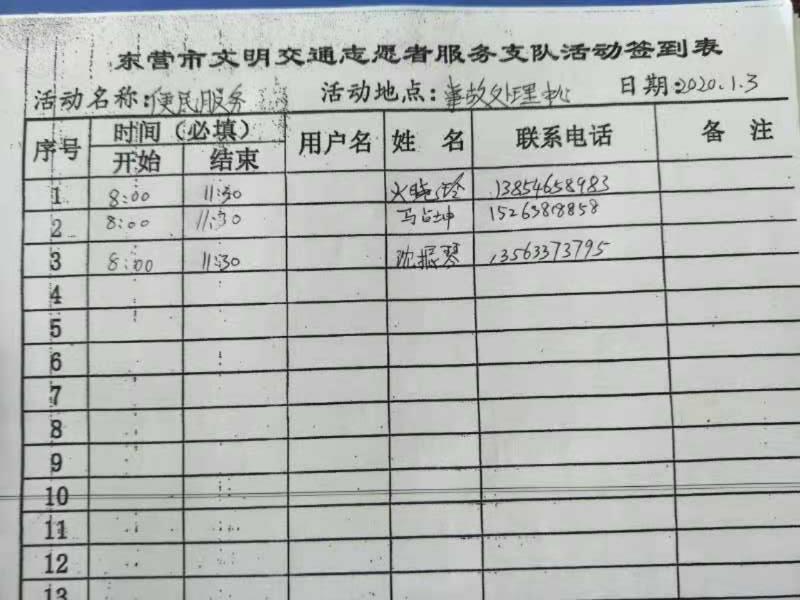 东营市文明交通志愿者服务支队活动签到表
活动名称:便民服务 活动地点:事故处理 日期:2020.1.3
序号 时间(必填) 用户名 姓 名 联系电话 备 注
开始 结束
1 8:00 11:30 13854658983
2 8:00 11:30 马占坤 15263818858
3 8:00 11:30 沈振琴 13563373795
4
5
6
7
8
9
10
11
12
13